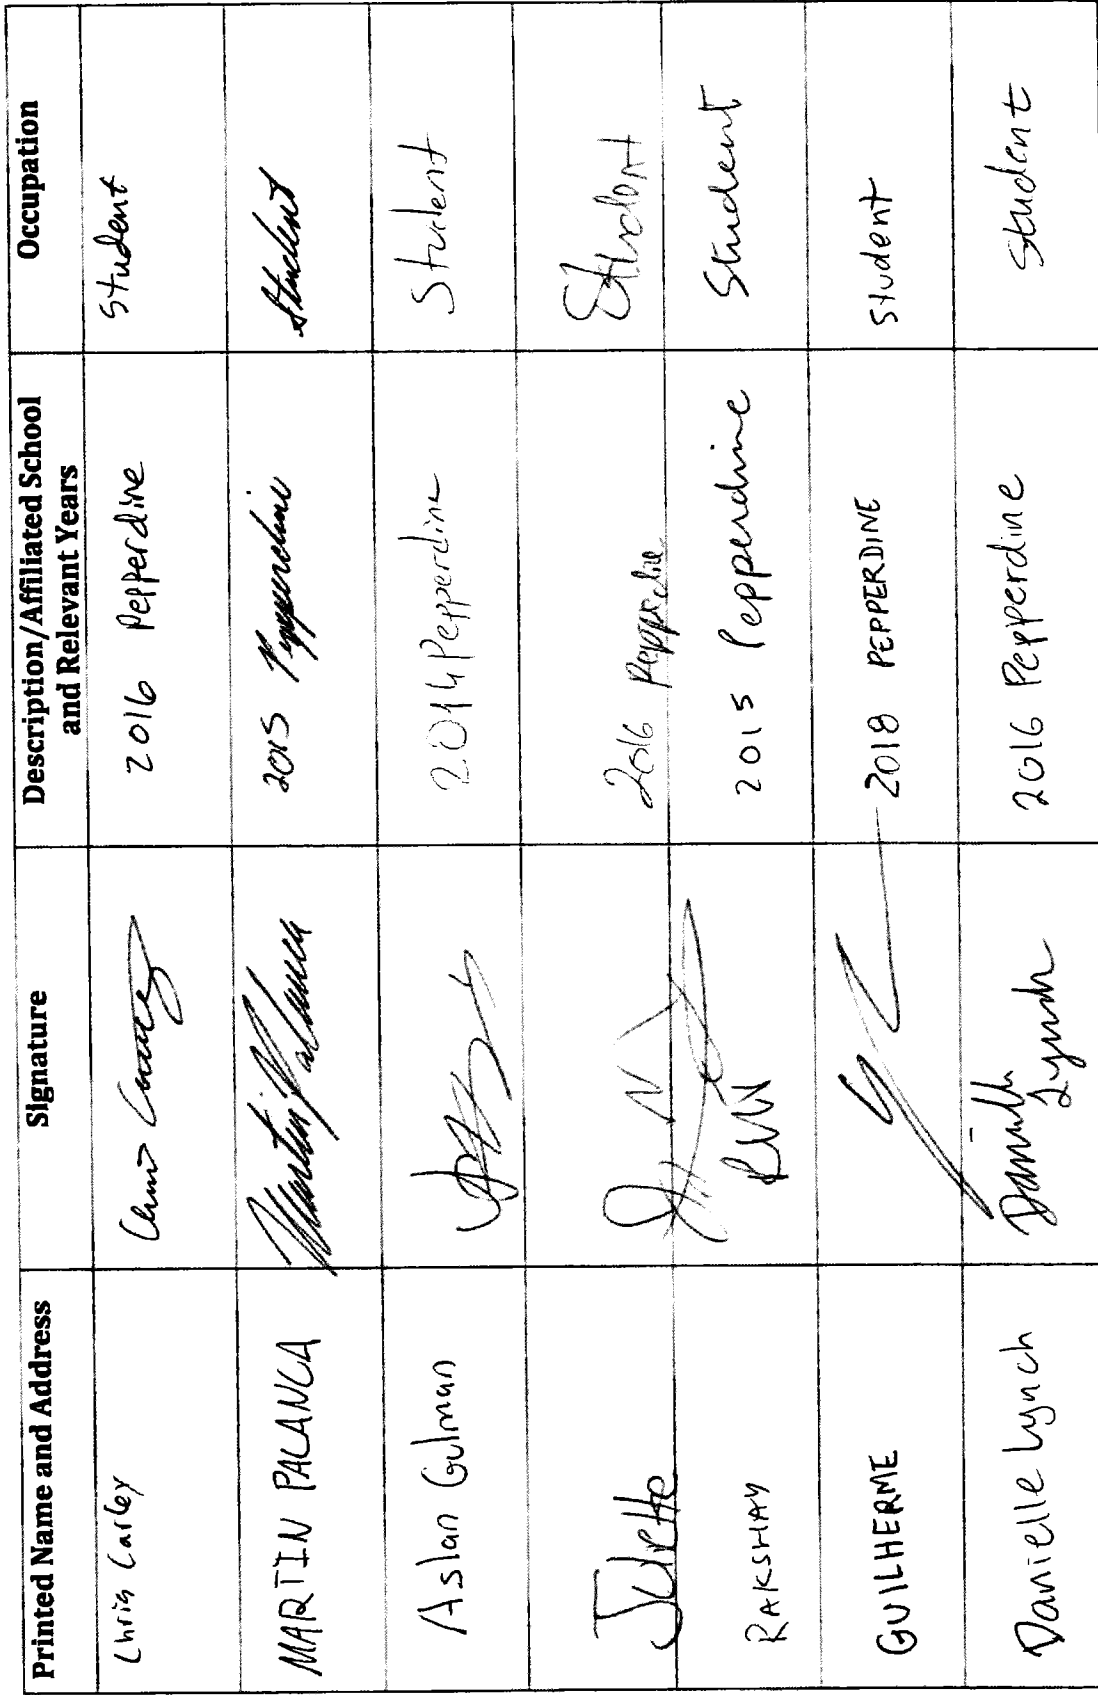 Printed Name and Address Signature Description/Affiliated School Occupation
and Relevant Years
Chris Carley Chris Carley 2016 Pepperdine Student
MARTIN PALANCA Martin Palanca 2015 Pepperdine Student
Aslan Gulman 2014 Pepperdine Student
Juliette 2016 Pepperdine Student
RAKSHAY 2015 Pepperdine Student
GUILHERME 2018 PEPPERDINE Student
Danielle Lynch Danielle 2016 Pepperdine Student
Lynch